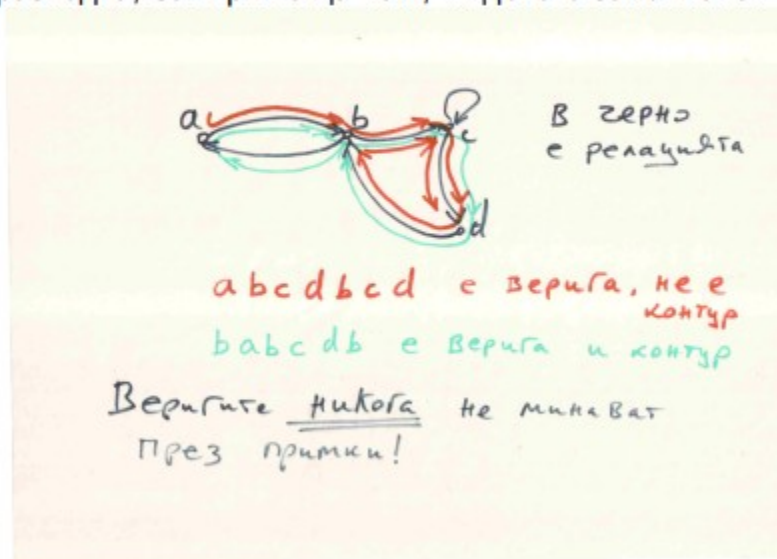 a b c d
В черно
е релацията
a b c d b c d е верига, не е
контур
b a b c d b е верига и контур
Веригите никога не минават
през примки!